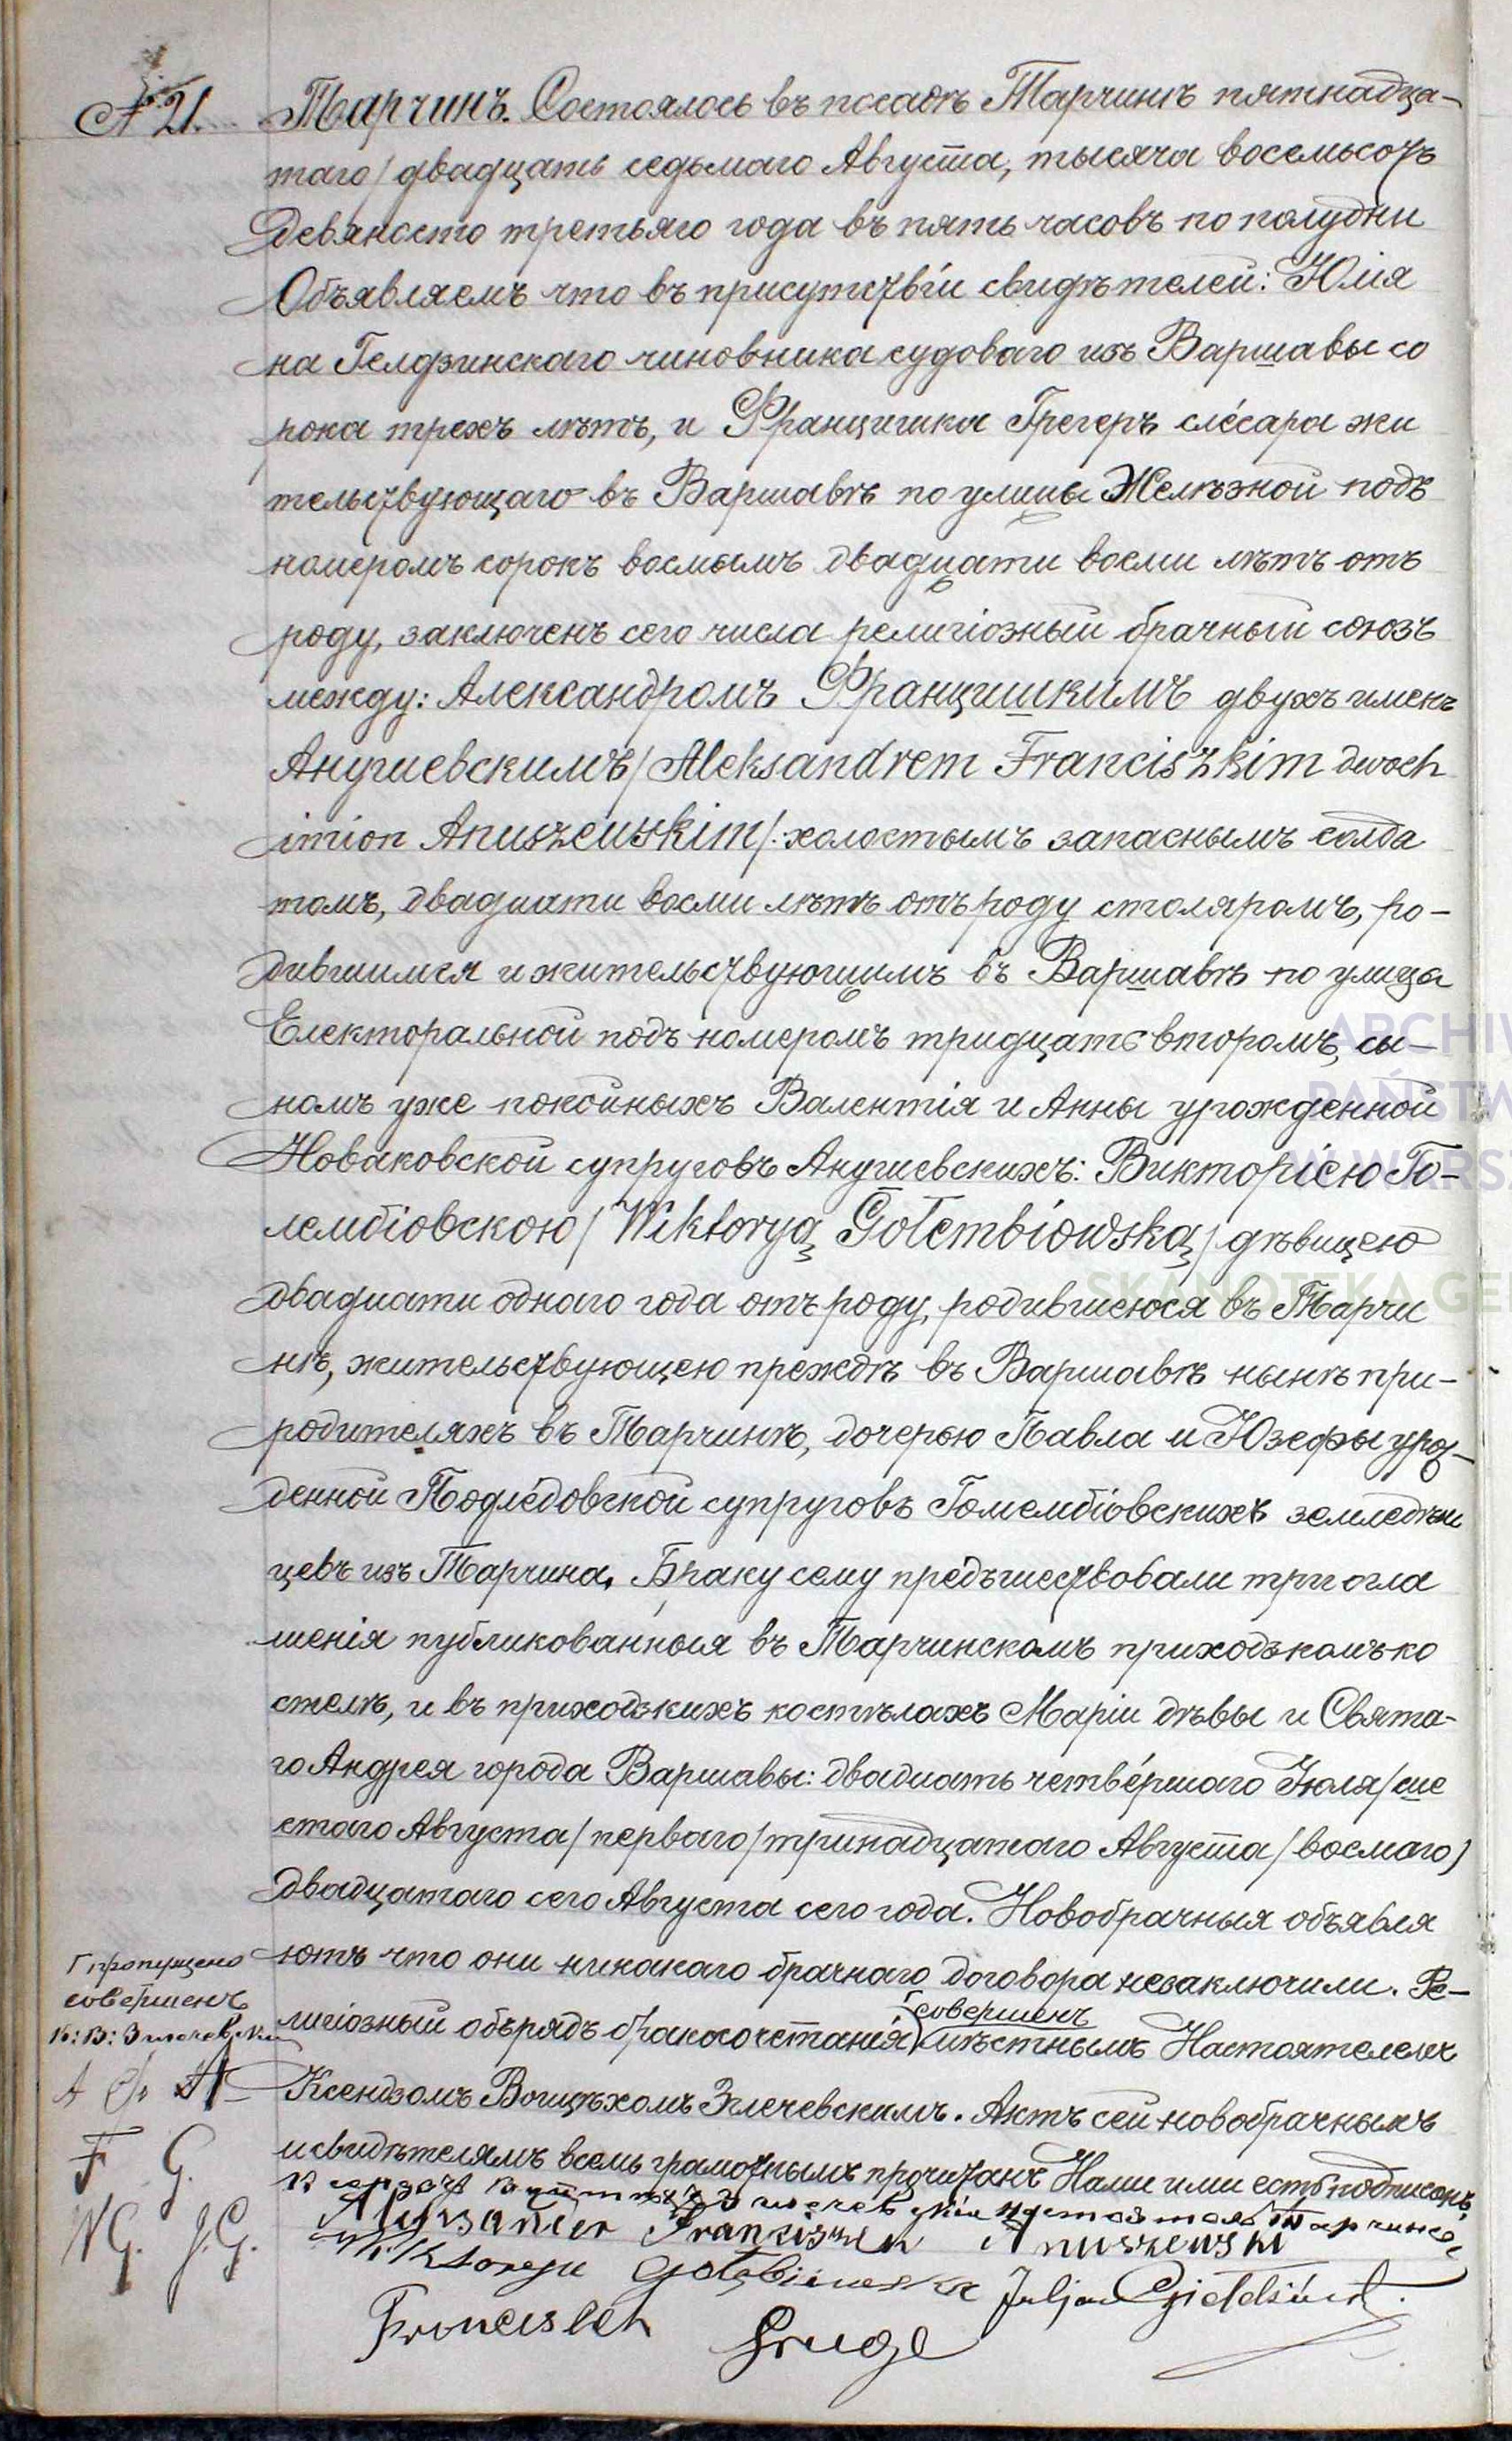 № 21.
Тарчинъ. Состоялось въ посадѣ Тарчинѣ пятнадца-
таго/двадцать седьмаго Августа, тысяча восемьсотъ
девяносто третьяго года въ пять часовъ по полудни
Объявляемъ что въ присутствіи свидѣтелей: Юлія
на Гелдзинскаго чиновника судоваго изъ Варшавы со
рока трехъ лѣтъ, и Францишка Грегеръ слесара жи
тельствующаго въ Варшавѣ по улицы Желѣзной подъ
номеромъ сорокъ восмымъ двадцати восми лѣтъ отъ
роду, заключенъ сего числа религіозный брачный союзъ
между: Александромъ Францишкимъ двухъ именъ
Анушевскимъ/Aleksandrem Franciszkim dwoch
imion Anuszewskim/: холостымъ запаснымъ солда
томъ, двадцати восми лѣтъ отъ роду столяромъ, ро-
дившимся и жительствующимъ въ Варшавѣ по улица
Електоральной подъ номеромъ тридцать второмъ, сы-
номъ уже покойныхъ Валентія и Анны урожденной
Новаковской супруговъ Анушевскихъ: Викторіею Го-
лембіовскою/Wiktoryą Gołembiowską/дѣвицею
двадцати одного года отъ роду, родившеюся въ Тарчи
нѣ, жительствующею преждѣ въ Варшавѣ нынѣ при-
родителяхъ въ Тарчинѣ, дочерью Павла и Юзефы урож-
денной Подледовской супруговъ Гомембіовскихъ земледѣл
цевъ изъ Тарчина. Браку сему предъшествовали три огла
шенія публикованныя въ Тарчинскомъ приходъкомъ ко
стелѣ, и въ приходъкихъ костѣлахъ Маріи дѣвы и Свята-
го Андрея города Варшавы: двадцать четвершаго Іюля/ше
стого Августа/перваго/тринадцатаго Августа/восмаго)
двадцатаго сего Августа сего года. Новобрачныя объявля
ютъ что они никакаго брачнаго договора незаключили. Ре-
совершенъ
лигіозный обърядъ бракосочетанія мѣстнымъ Настоятелемъ
Ксендзомъ Войцѣхомъ Злечевскимъ. Актъ сей новобрачнымъ
и свидѣтелямъ всемъ грамотнымъ прочитанъ Нами ими естъ подписанъ
Г пропущено
совершенъ
К: В: Злечевскій
A F A
F G.
W G. J. G.
Ксендзъ Войтѣхъ Злечевскій Настоятель Тарчинс.
Aleksander Franciszek Anuszewski
Wiktorya Gołębiowska Juljan Giełdziński
Franciszek Gruge